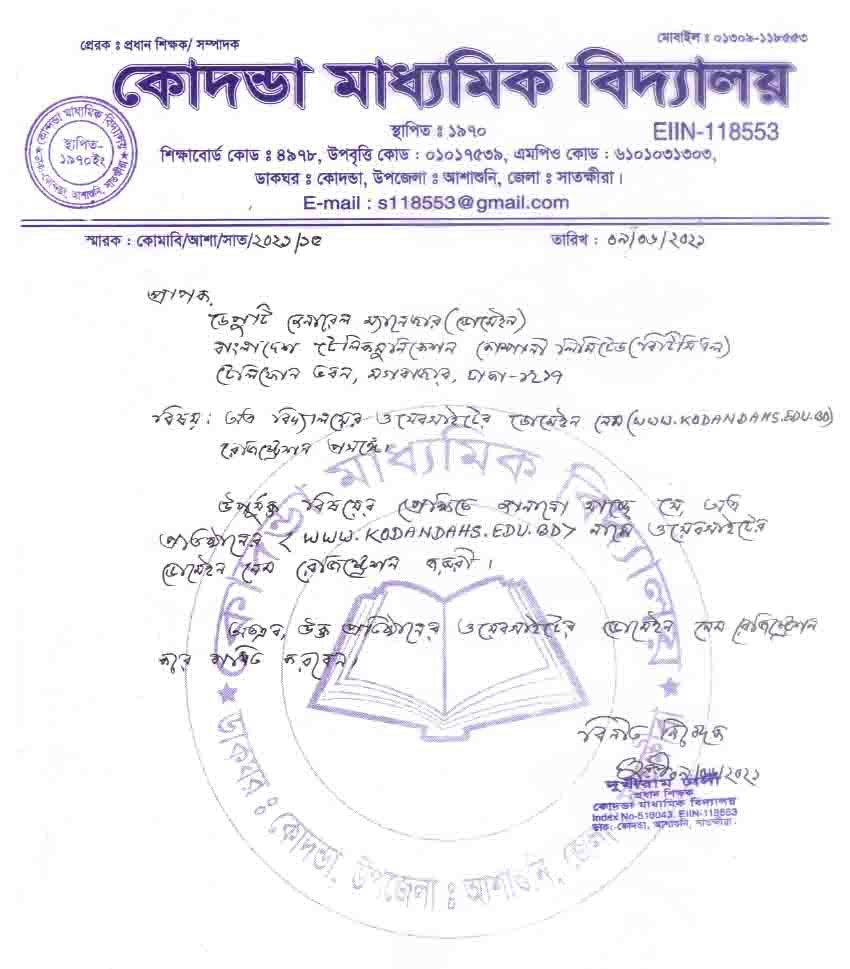 প্রেরক ঃ প্রধান শিক্ষক/ সম্পাদক
মোবাইল ঃ ০১৩০৯-১১৮৫৫৩
কোদন্ডা মাধ্যমিক বিদ্যালয়
স্থাপিত ঃ ১৯৭০
EIIN-118553
শিক্ষাবোর্ড কোড ঃ ৪৯৭৮, উপবৃত্তি কোড : ০১০১৭৫৩৯, এমপিও কোড : ৬১০১০৩১৩০৩,
ডাকঘর ঃ কোদন্ডা, উপজেলা ঃ আশাশুনি, জেলা ঃ সাতক্ষীরা।
E-mail : s118553@gmail.com
কোদন্ডা মাধ্যমিক বিদ্যালয়
স্থাপিত-
১৯৭০ইং
স্মারক : কোমাবি/আশা/সাত/২০২১/১৫
তারিখ : ০৯/০৬/২০২১
প্রাপক,
ডেপুটি জেনারেল ম্যানেজার (ডোমেইন)
বাংলাদেশ টেলিকমুনিকেশন কোম্পানী লিমিটেড (বিটিসিএল)
টেলিফোন ভবন, মগবাজার, ঢাকা-১২১৭
বিষয়: অত্র বিদ্যালয়ের ওয়েবসাইটের ডোমেইন নেম (WWW.KODANDAHS.EDU.BD)
রেজিস্ট্রেশন প্রসঙ্গে।
উপর্যুক্ত বিষয়ের প্রেক্ষিতে জানানো যাচ্ছে যে, অত্র
প্রতিষ্ঠানের < WWW.KODANDAHS.EDU.BD> নামে ওয়েবসাইটের
ডোমেইন নেম রেজিস্ট্রেশন জরুরী।
অতএব, উক্ত প্রতিষ্ঠানের ওয়েবসাইটের ডোমেইন নেম রেজিস্ট্রেশন
করে বাধিত করবেন।
বিনীত নিবেদক
প্রধান শিক্ষক
কোদন্ডা মাধ্যমিক বিদ্যালয়
Index No-518043, EIIN-118553
ডাক:-কোদন্ডা, আশাশুনি, সাতক্ষীরা.
কোদন্ডা মাধ্যমিক বিদ্যালয়
ডাকঘর ঃ কোদন্ডা, উপজেলা ঃ আশাশুনি,